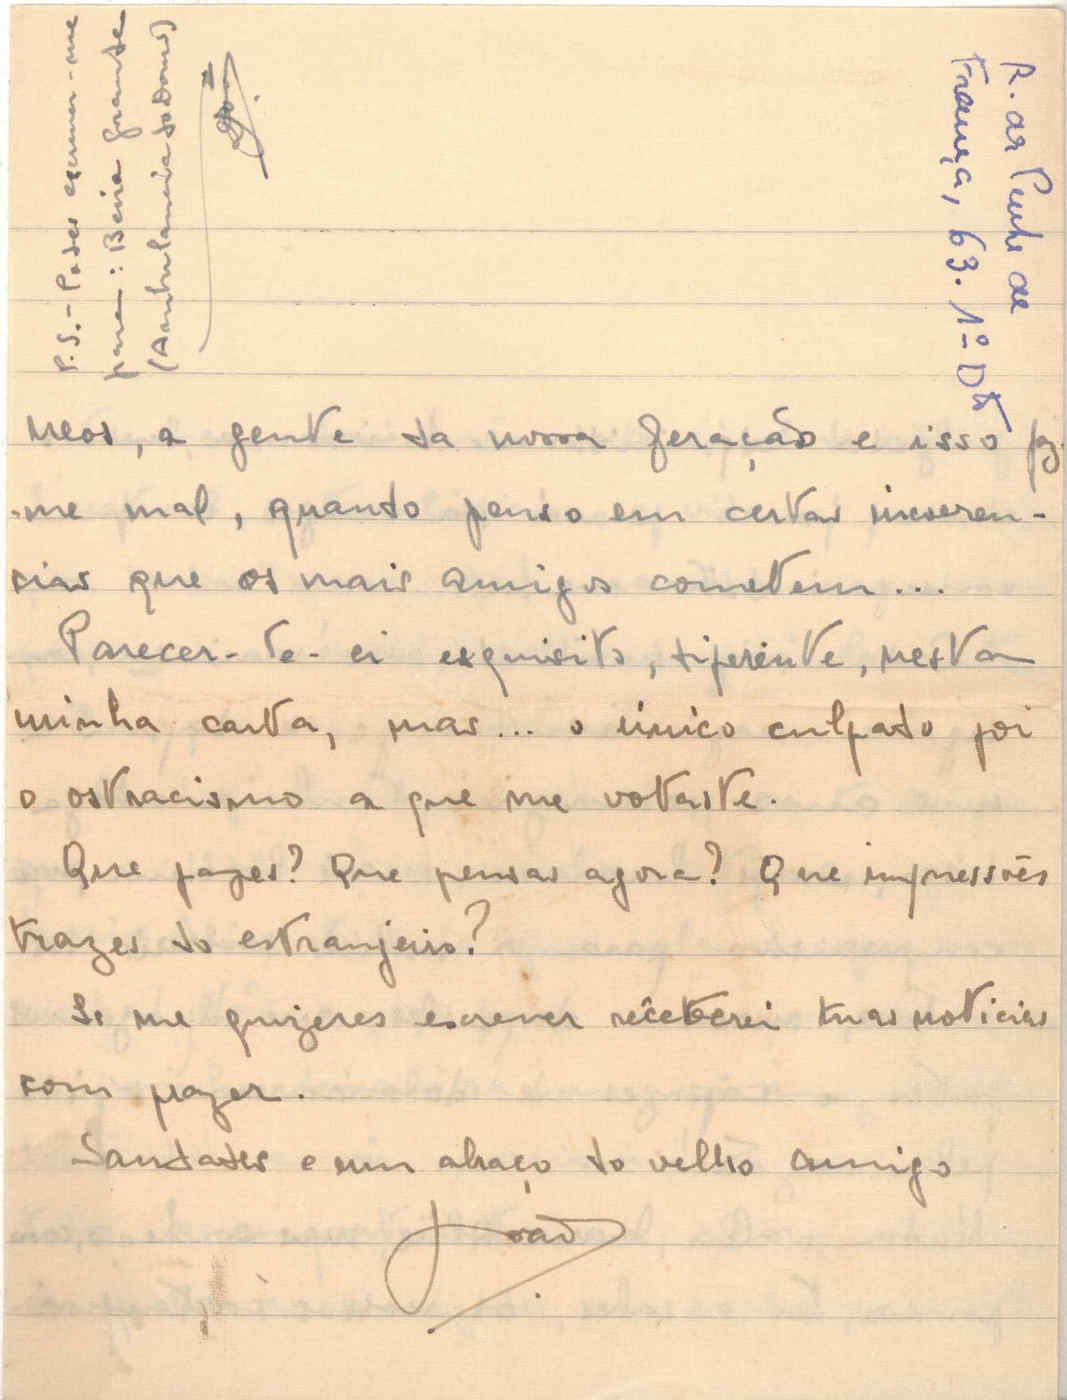 P.S. - Podes escrever-me
para: Beira Grande
(Ambulancia do Dondo)
João
R. da Penha de
França, 63. 1º Dtº
neos, a gente da nossa geração e isso faz-
-me mal, quando penso em certas incoeren-
cias que os mais amigos cometem...
Parecer-te-ei esquisito, diferente, nesta
minha carta, mas... o único culpado foi
o ostracismo a que me votaste.
Que fazes? Que pensas agora? Que impressões
trazes do estranjeiro?
Se me quizeres escrever receberei tuas noticias
com prazer.
Saudades e um abraço do velho amigo
João